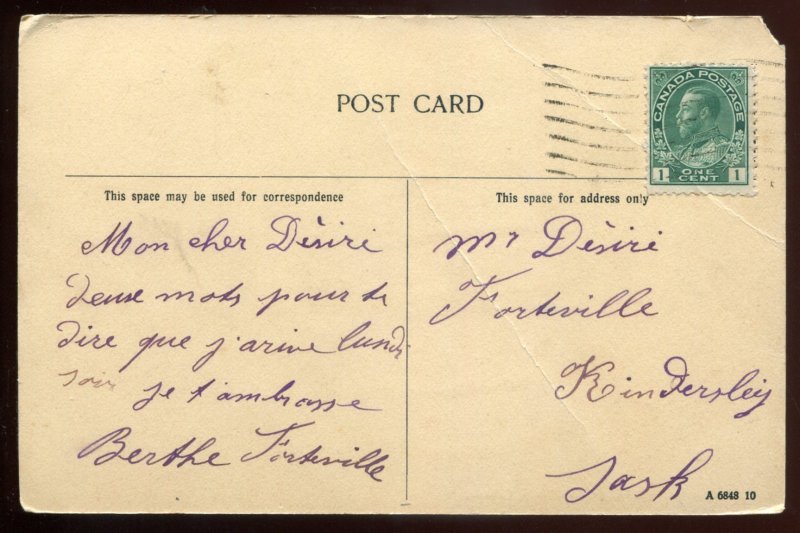 POST CARD
CANADA POSTAGE
1 ONE CENT 1
This space may be used for correspondence
Mon cher Dèsiri
deux mots pour te
dire que j'arive lundi
soir je t'ambrasse
Berthe Forteville
This space for address only
Mr Dèsiri
Forteville
Kindersley
Sask
A 6848 10